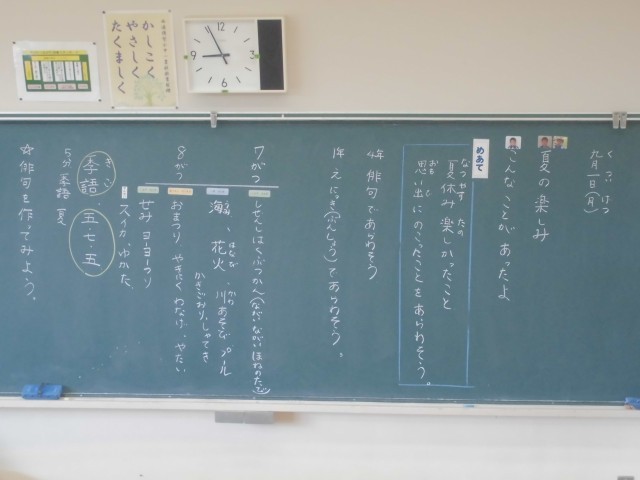 かしこく
やさしく
たくましく
12
3
6
9
九月一日(月)
夏の楽しみ
こんなことがあったよ
めあて
夏休み 楽しかったこと
なつやす たの
思い出にのこったことをあらわそう。
おも で
4年 俳句であらわそう
1年 えにっき(ぶんしょう)であらわそう。
7がつ
8がつ
海、花火、川あそび プール
はなび かわ
かきごおり、しゃてき
おまつり やきにく わなげ、やたい
せみ ヨーヨーつり
スイカ、ゆかた
季語
きご
五・七・五
5分 季語 夏
☆俳句を作ってみよう。